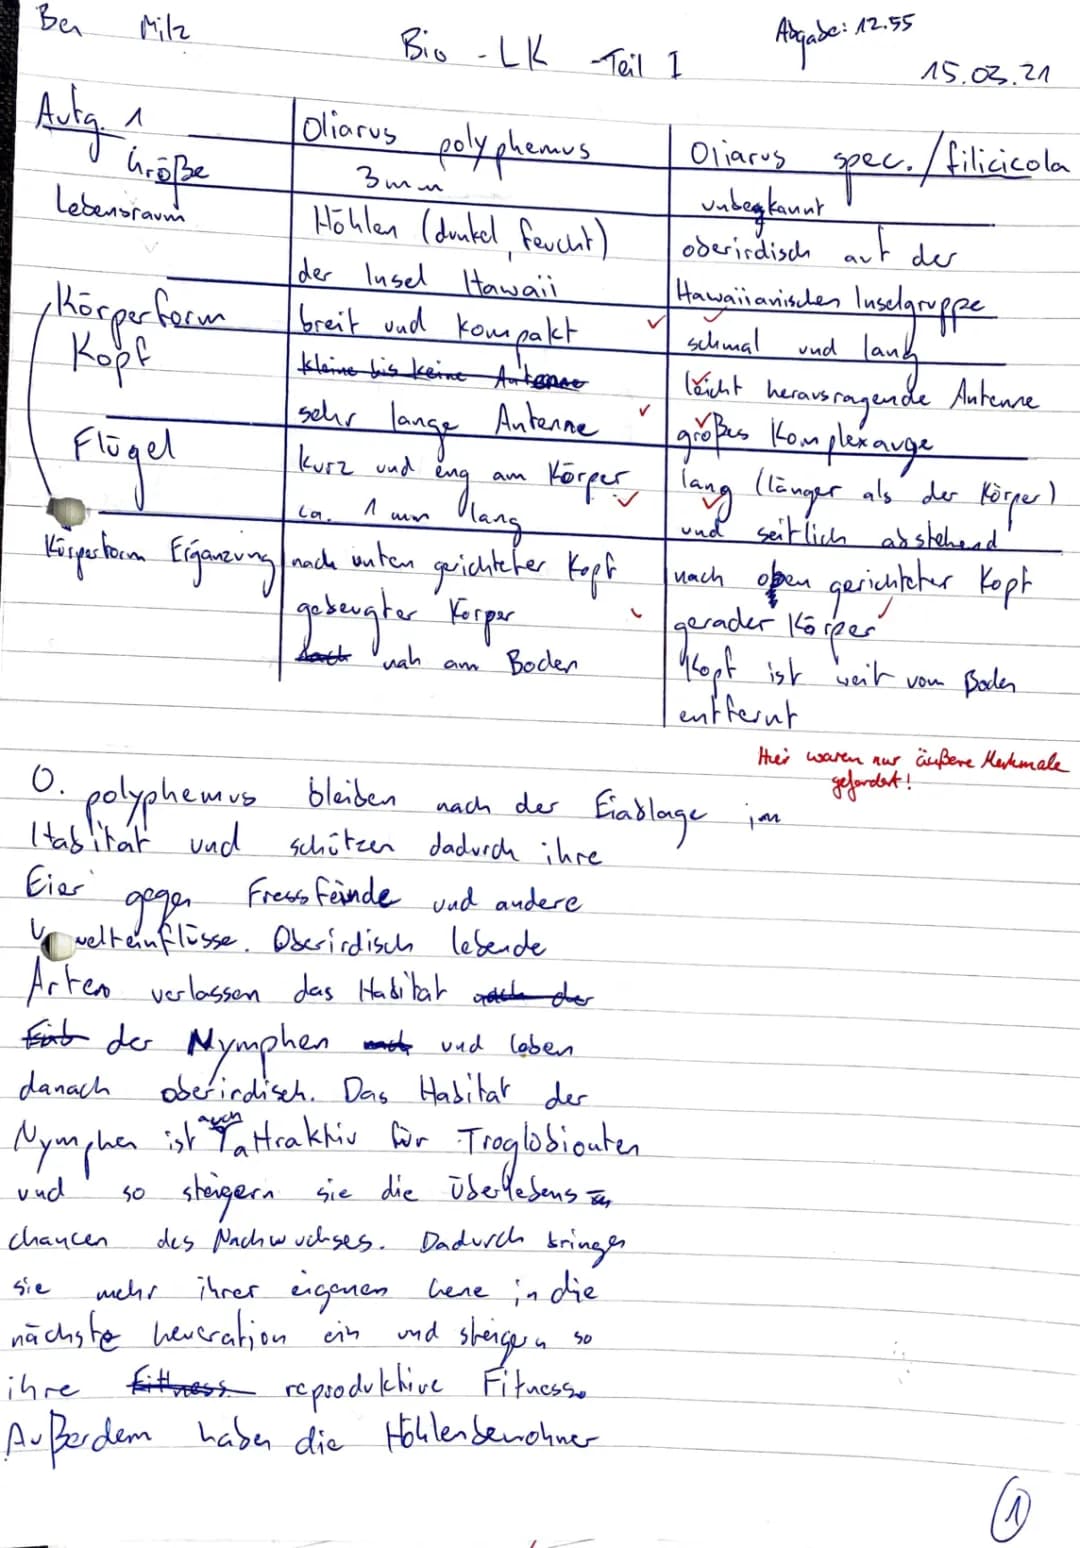 Ben Milz
Bio - LK - Teil I
Abgabe: 12.55
15.03.21
Aufg. 1
Oliarus polyphemus
Oliarus spec./filicicola
Größe
3mm
unbegkannt
Lebensraum
Höhlen (dunkel, feucht)
der Insel Hawaii
oberirdisch auf der
Hawaiianischen Inselgruppe
Körperform
breit und kompakt
schmal und lang
Kopf
kleine bis keine Antenne
sehr lange Antenne
leicht herausragende Antenne
großes Komplexauge
Flügel
kurz und eng am Körper
ca. 1 mm lang
lang (länger als der Körper)
und seitlich abstehend
Körperform Ergänzung
nach unten gerichteter Kopf
gebeugter Körper
nah am Boden
nach oben gerichteter Kopf
gerader Körper
Kopf ist weit vom Boden
entfernt
Hier waren nur äußere Merkmale
gefordert!
O. polyphemus bleiben nach der Eiablage im
Habitat und schützen dadurch ihre
Eier gegen Fressfeinde und andere
welteinflüsse. Oberirdisch lebende
Arten verlassen das Habitat nach der
der Nymphen nach und leben
danach oberirdisch. Das Habitat der
Nymphen ist auch attraktiv für Troglobionten
und so steigern sie die Überlebens
chancen des Nachwuchses. Dadurch bringen
sie mehr ihrer eigenen Gene in die
nächste Generation ein und steigern so
ihre Fittness reproduktive Fitness.
Außerdem haben die Höhlenbewohner
1